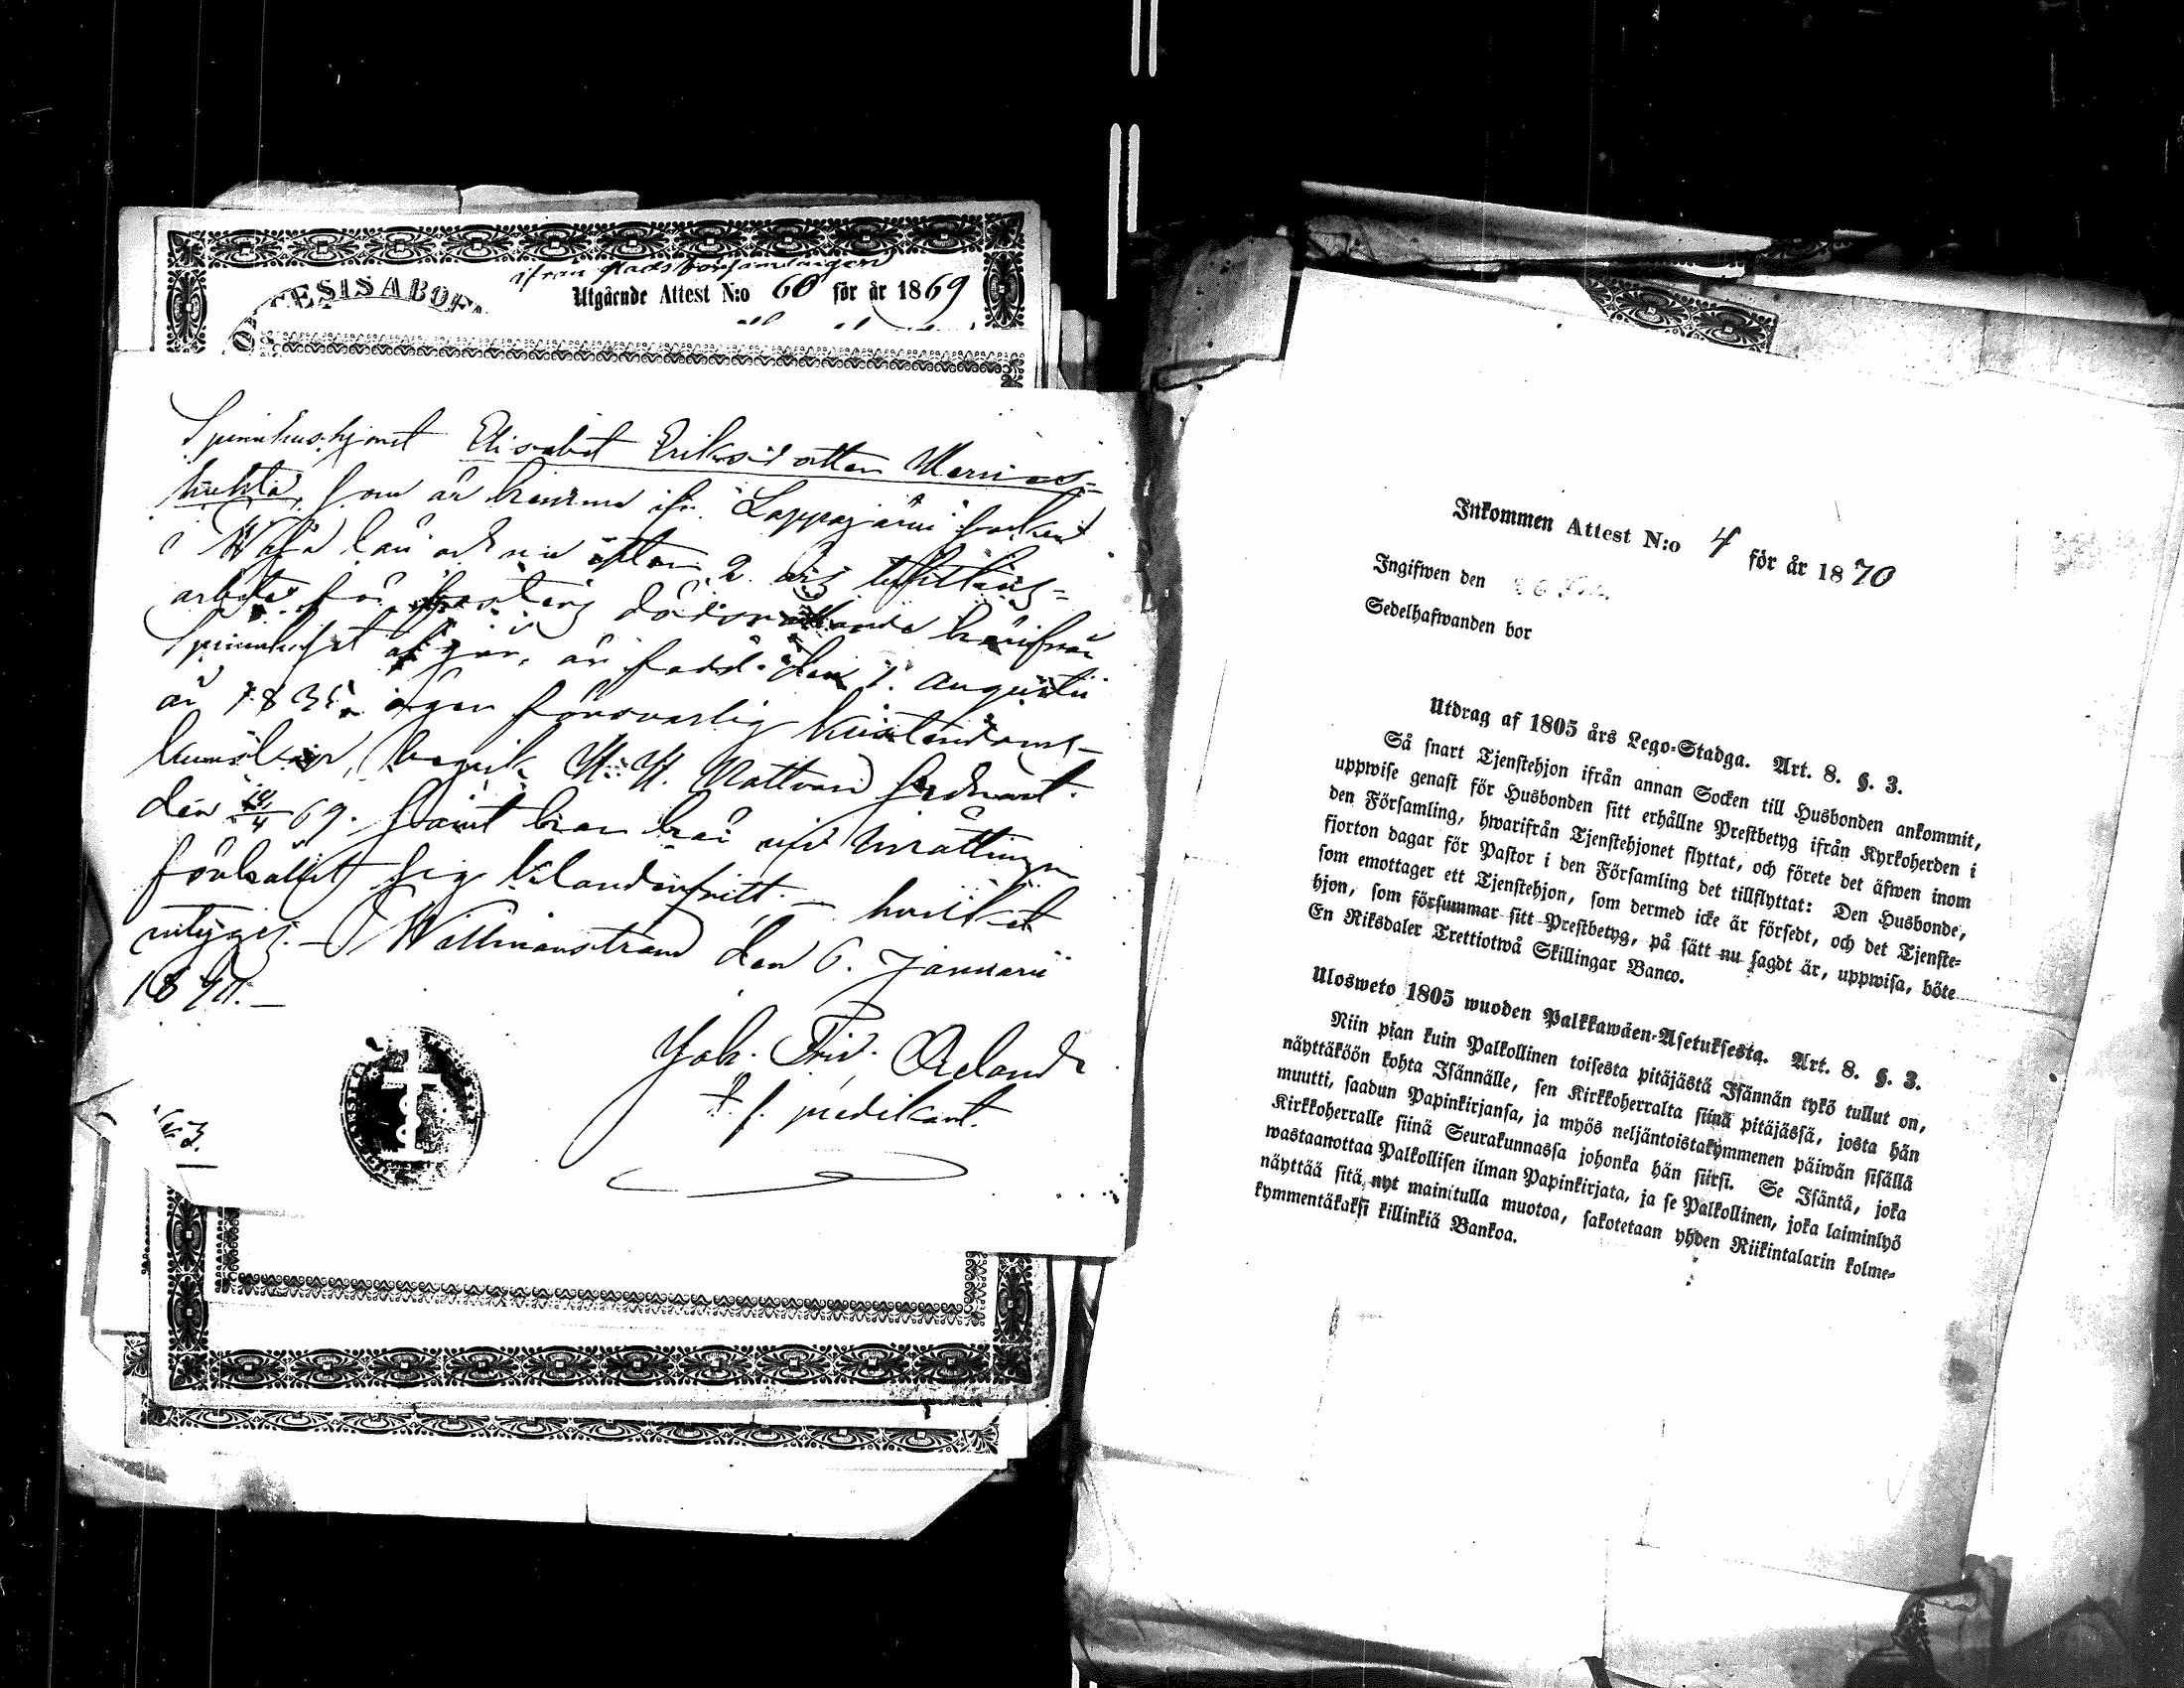 ifrån stadsförsamlingen
Utgående Attest N:o 60 för år 1869
Spinnhushjonet Elisabet Eriksdotter
som är hemma ifr. Lappajärvi socken
i Wasa län och nu efter 2 års
arbete för härifrån
Spinnhuset afgår, är född den 1. Augusti
år 1835, äger försvarlig kristendoms-
kunskap, begick H. H. Nattvard sednast
den /4 69. samt har här vid inrättningen
förhållit sig klanderfritt. – hvilket
intygas. – Willmanstrand den 6. Januarii
1870. –
Joh. Frid.
t. f. predikant.
Inkommen Attest N:o 4 för år 1870
Ingifwen den
Sedelhafwanden bor
Utdrag af 1805 års Lego-Stadga. Art. 8. §. 3.
Så snart Tjenstehjon ifrån annan Socken till Husbonden ankommit,
uppwise genast för Husbonden sitt erhållne Prestbetyg ifrån Kyrkoherden i
den Församling, hwarifrån Tjenstehjonet flyttat, och förete det äfwen inom
fjorton dagar för Pastor i den Församling det tillflyttat: Den Husbonde,
som emottager ett Tjenstehjon, som dermed icke är försedt, och det Tjenste-
hjon, som försummar sitt Prestbetyg, på sätt nu sagdt är, uppwisa, böte
En Riksdaler Trettiotwå Skillingar Banco.
Ulosweto 1805 wuoden Palkkawäen-Asetuksesta. Art. 8. §. 3.
Niin pian kuin Palkollinen toisesta pitäjästä Isännän tykö tullut on,
näyttäköön kohta Isännälle, sen Kirkkoherralta siinä pitäjässä, josta hän
muutti, saadun Papinkirjansa, ja myös neljäntoistakymmenen päiwän sisällä
Kirkkoherralle siinä Seurakunnassa johonka hän siirsi. Se Isäntä, joka
wastaanottaa Palkollisen ilman Papinkirjata, ja se Palkollinen, joka laiminlyö
näyttää sitä, nyt mainitulla muotoa, sakotetaan yhden Riikintalarin kolme-
kymmentäkaksi killinkiä Bankoa.